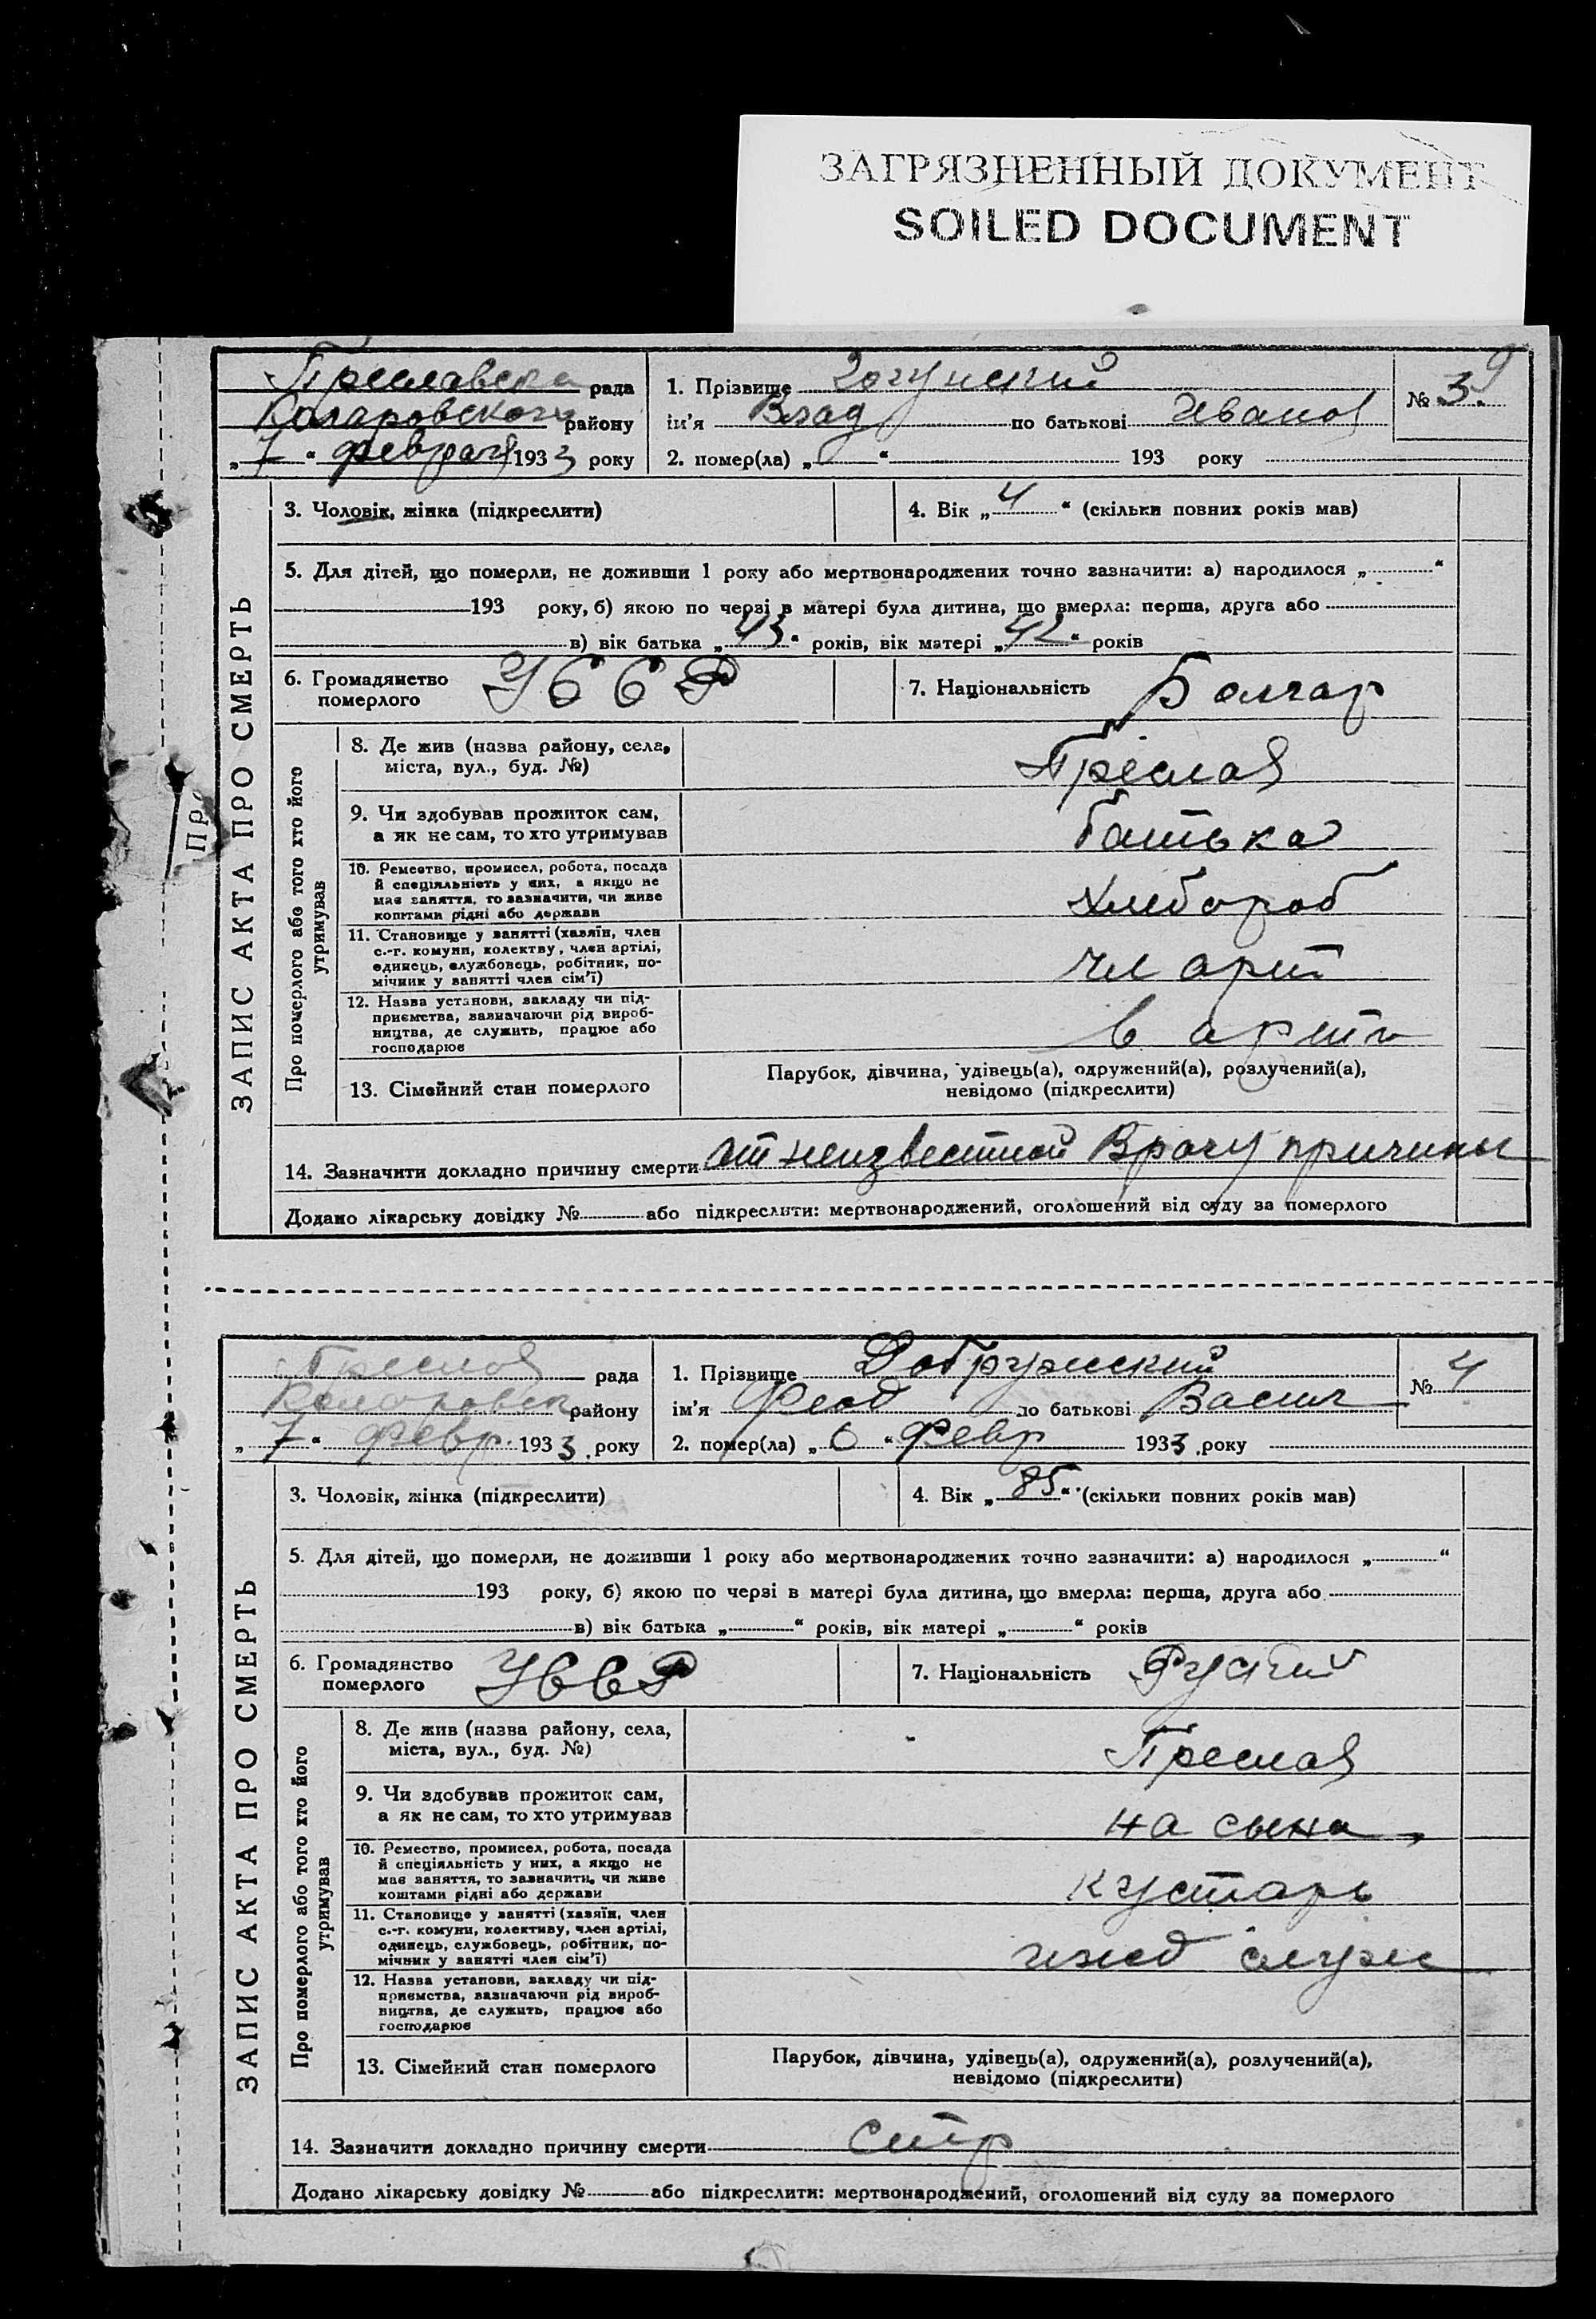 ЗАГРЯЗНЕННЫЙ ДОКУМЕНТ
SOILED DOCUMENT
Преславска рада
Коларовского району
„ 7 “ февраля 1933 року
1. Прізвище
ім'я Влад по батькові Иванов
2. помер(ла) „ “ 193 року
№ 3
ЗАПИС АКТА ПРО СМЕРТЬ
3. Чоловік, жінка (підкреслити)
4. Вік „ 4 “ (скільки повних років мав)
5. Для дітей, що померли, не доживши 1 року або мертвонароджених точно зазначити: а) народилося „ “
193 року, б) якою по черзі в матері була дитина, що вмерла: перша, друга або
в) вік батька „ 43 “ років, вік матері „ 42 “ років
6. Громадянство
померлого
УССР
7. Національність Болгар
Про померлого або того хто його
утримував
8. Де жив (назва району, села,
міста, вул., буд. №)
Преслав
9. Чи здобував прожиток сам,
а як не сам, то хто утримував
батька
10. Ремество, промисел, робота, посада
й спеціяльність у них, а якщо не
має заняття, то зазначити, чи живе
коштами рідні або держави
хлебороб
11. Становище у занятті (хазяїн, член
с.-г. комуни, колектву, член артілі,
одинець, службовець, робітник, по-
мічник у занятті член сім'ї)
чл арт
12. Назва установи, закладу чи під-
приємства, зазначаючи рід вироб-
ництва, де служить, працює або
господарює
в арти
13. Сімейний стан померлого
Парубок, дівчина, удівець(а), одружений(а), розлучений(а),
невідомо (підкреслити)
14. Зазначити докладно причину смерти от неизвестной Врачу причины
Додано лікарську довідку № або підкреслити: мертвонароджений, оголошений від суду за померлого
Преслав рада
Коларовск району
„ 7 “ Февр. 1933. року
1. Прізвище Добружский
ім'я Феод по батькові Васил
2. помер(ла) „ 6 “ Февр 1933. року
№ 4
ЗАПИС АКТА ПРО СМЕРТЬ
3. Чоловік, жінка (підкреслити)
4. Вік „ 85 “ (скільки повних років мав)
5. Для дітей, що померли, не доживши 1 року або мертвонароджених точно зазначити: а) народилося „ “
193 року, б) якою по черзі в матері була дитина, що вмерла: перша, друга або
в) вік батька „ “ років, вік матері „ “ років
6. Громадянство
померлого
УССР
7. Національність Руский
Про померлого або того хто його
утримував
8. Де жив (назва району, села,
міста, вул., буд. №)
Преслав
9. Чи здобував прожиток сам,
а як не сам, то хто утримував
на сына
10. Ремество, промисел, робота, посада
й спеціяльність у них, а якщо не
має заняття, то зазначити, чи живе
коштами рідні або держави
кустарь
11. Становище у занятті (хазяїн, член
с.-г. комуни, колективу, член артілі,
одинець, службовець, робітник, по-
мічник у занятті член сім'ї)
12. Назва установи, закладу чи під-
приємства, зазначаючи рід вироб-
ництва, де служить, працює або
господарює
13. Сімейний стан померлого
Парубок, дівчина, удівець(а), одружений(а), розлучений(а),
невідомо (підкреслити)
14. Зазначити докладно причину смерти стр
Додано лікарську довідку № або підкреслити: мертвонароджений, оголошений від суду за померлого